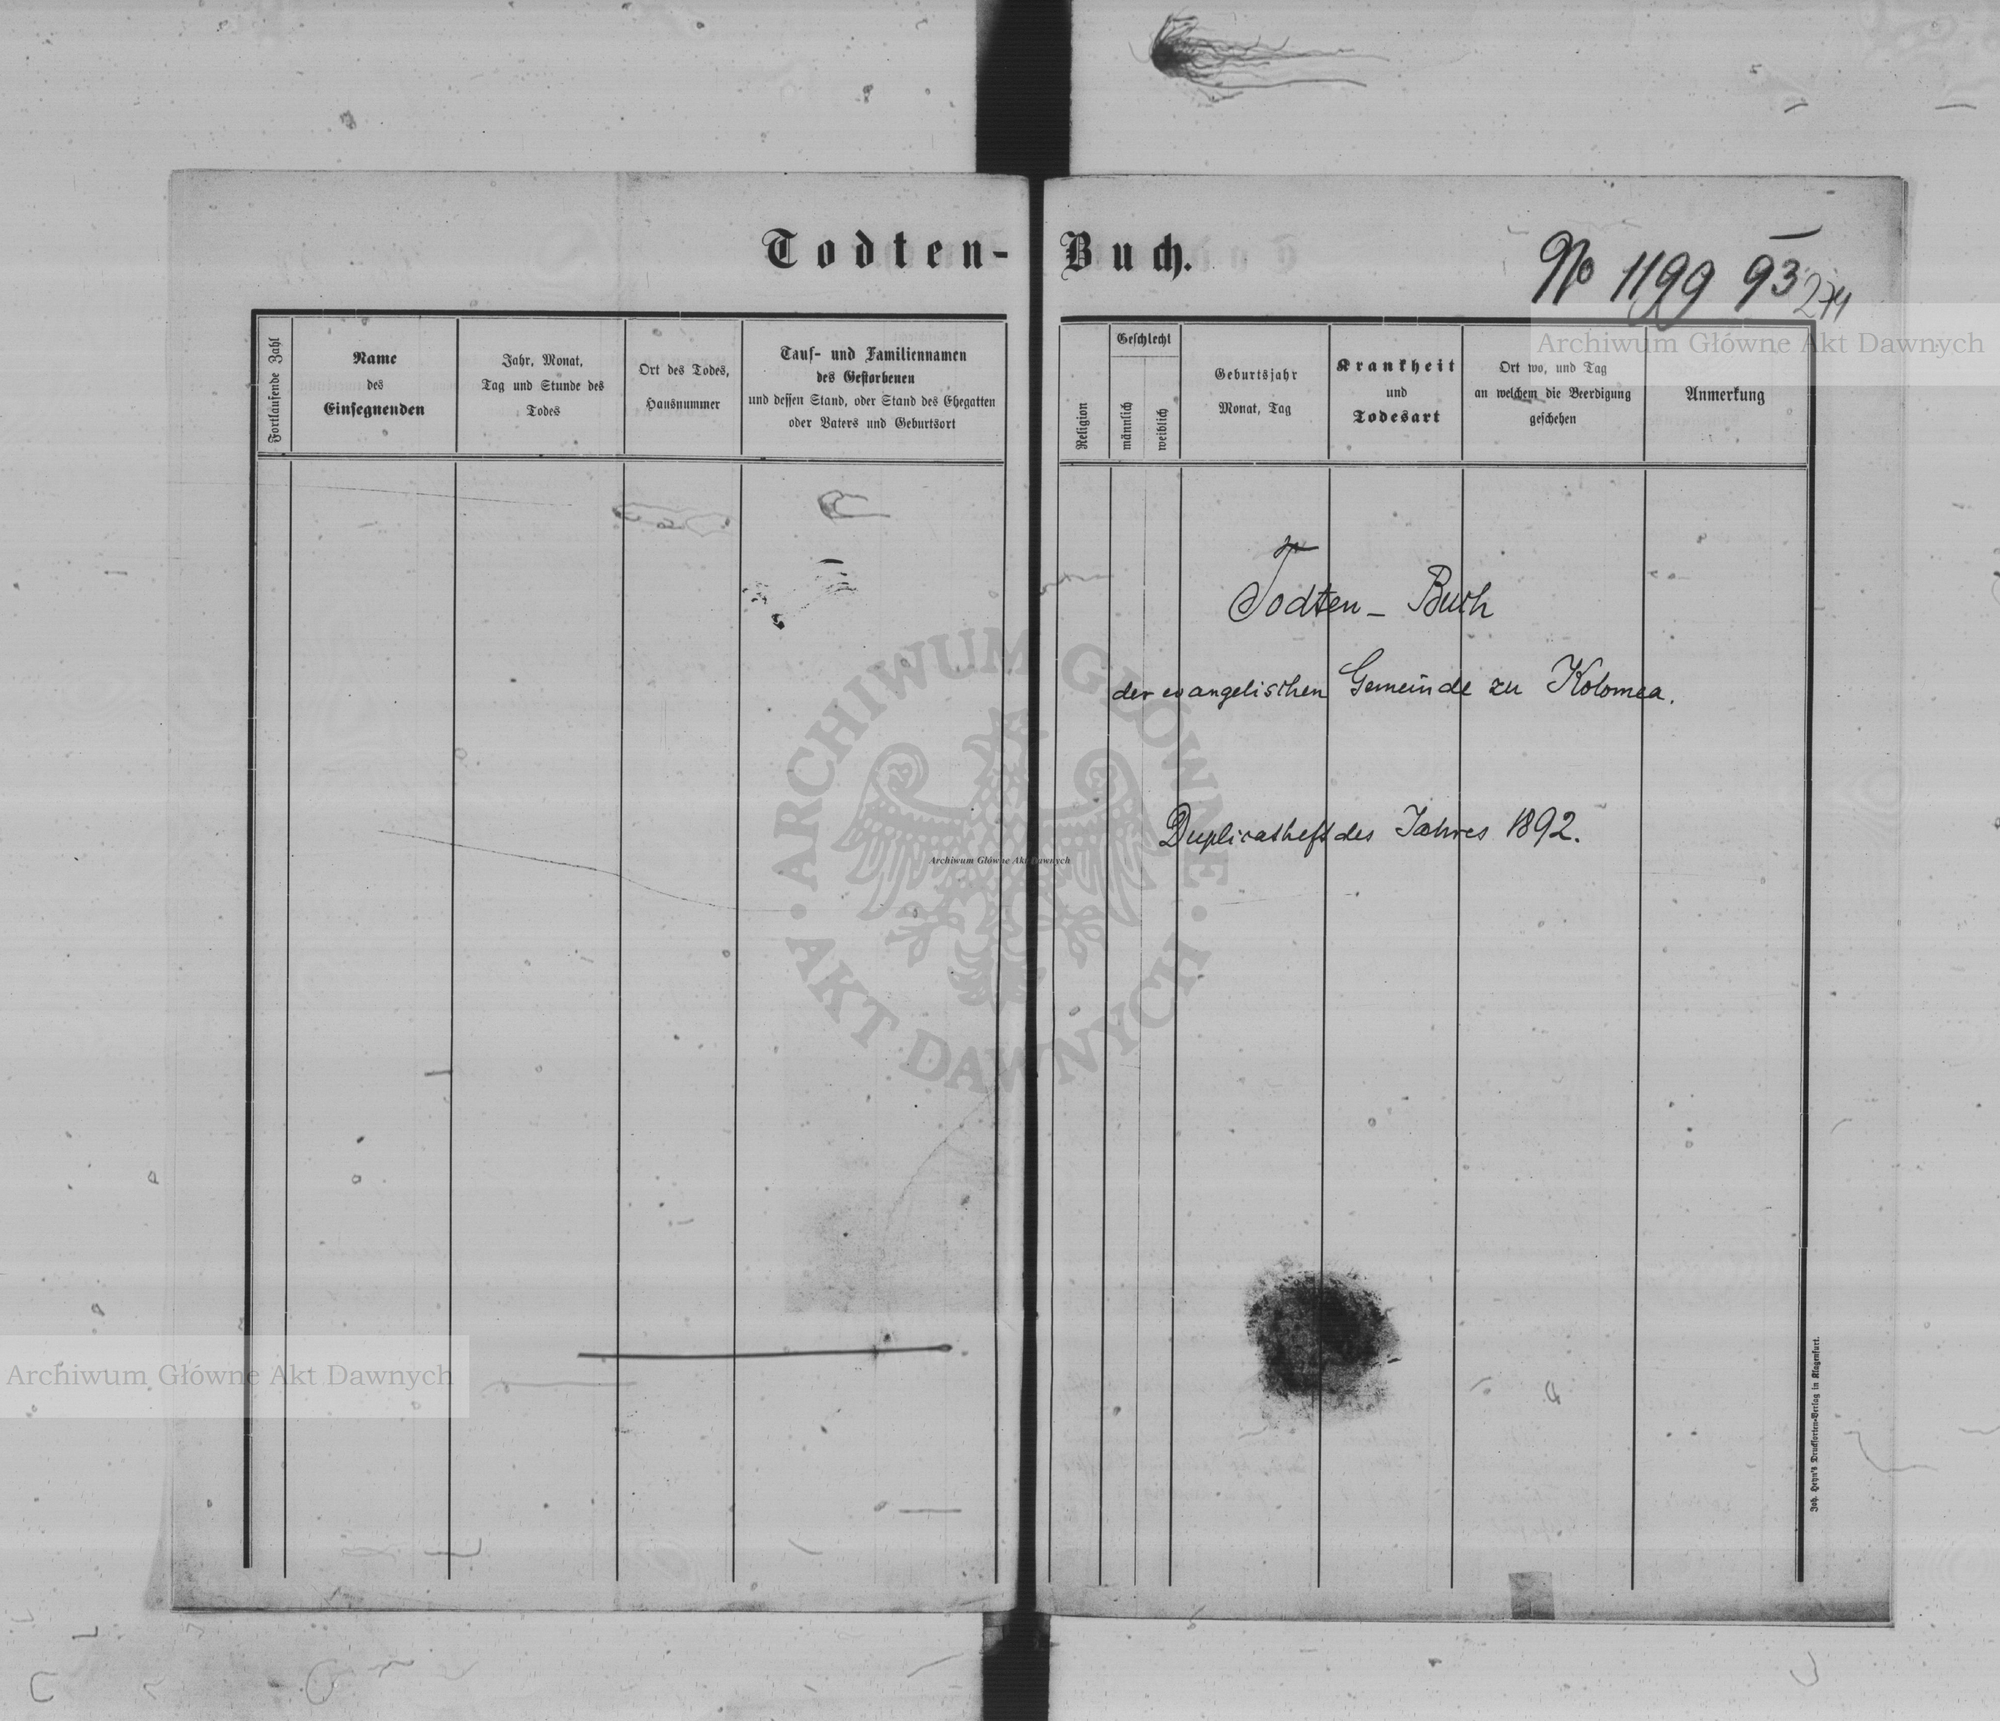 Todten-Buch.
No 1199 93
274
Fortlaufende Zahl
Name
des
Einsegnenden
Jahr, Monat,
Tag und Stunde des
Todes
Ort des Todes,
Hausnummer
Tauf- und Familiennamen
des Gestorbenen
und dessen Stand, oder Stand des Ehegatten
oder Vaters und Geburtsort
Religion
Geschlecht
männlich
weiblich
Geburtsjahr
Monat, Tag
Krankheit
und
Todesart
Ort wo, und Tag
an welchem die Beerdigung
geschehen
Anmerkung
Archiwum Główne Akt Dawnych
Todten - Buch
der evangelischen Gemeinde zu Kolomea.
Duplicatheft des Jahres 1892.
ARCHIWUM GŁÓWNE
Archiwum Główne Akt Dawnych
AKT DAWNYCH
Archiwum Główne Akt Dawnych
Joh. Heyn's Drucksorten-Verlag in Klagenfurt.